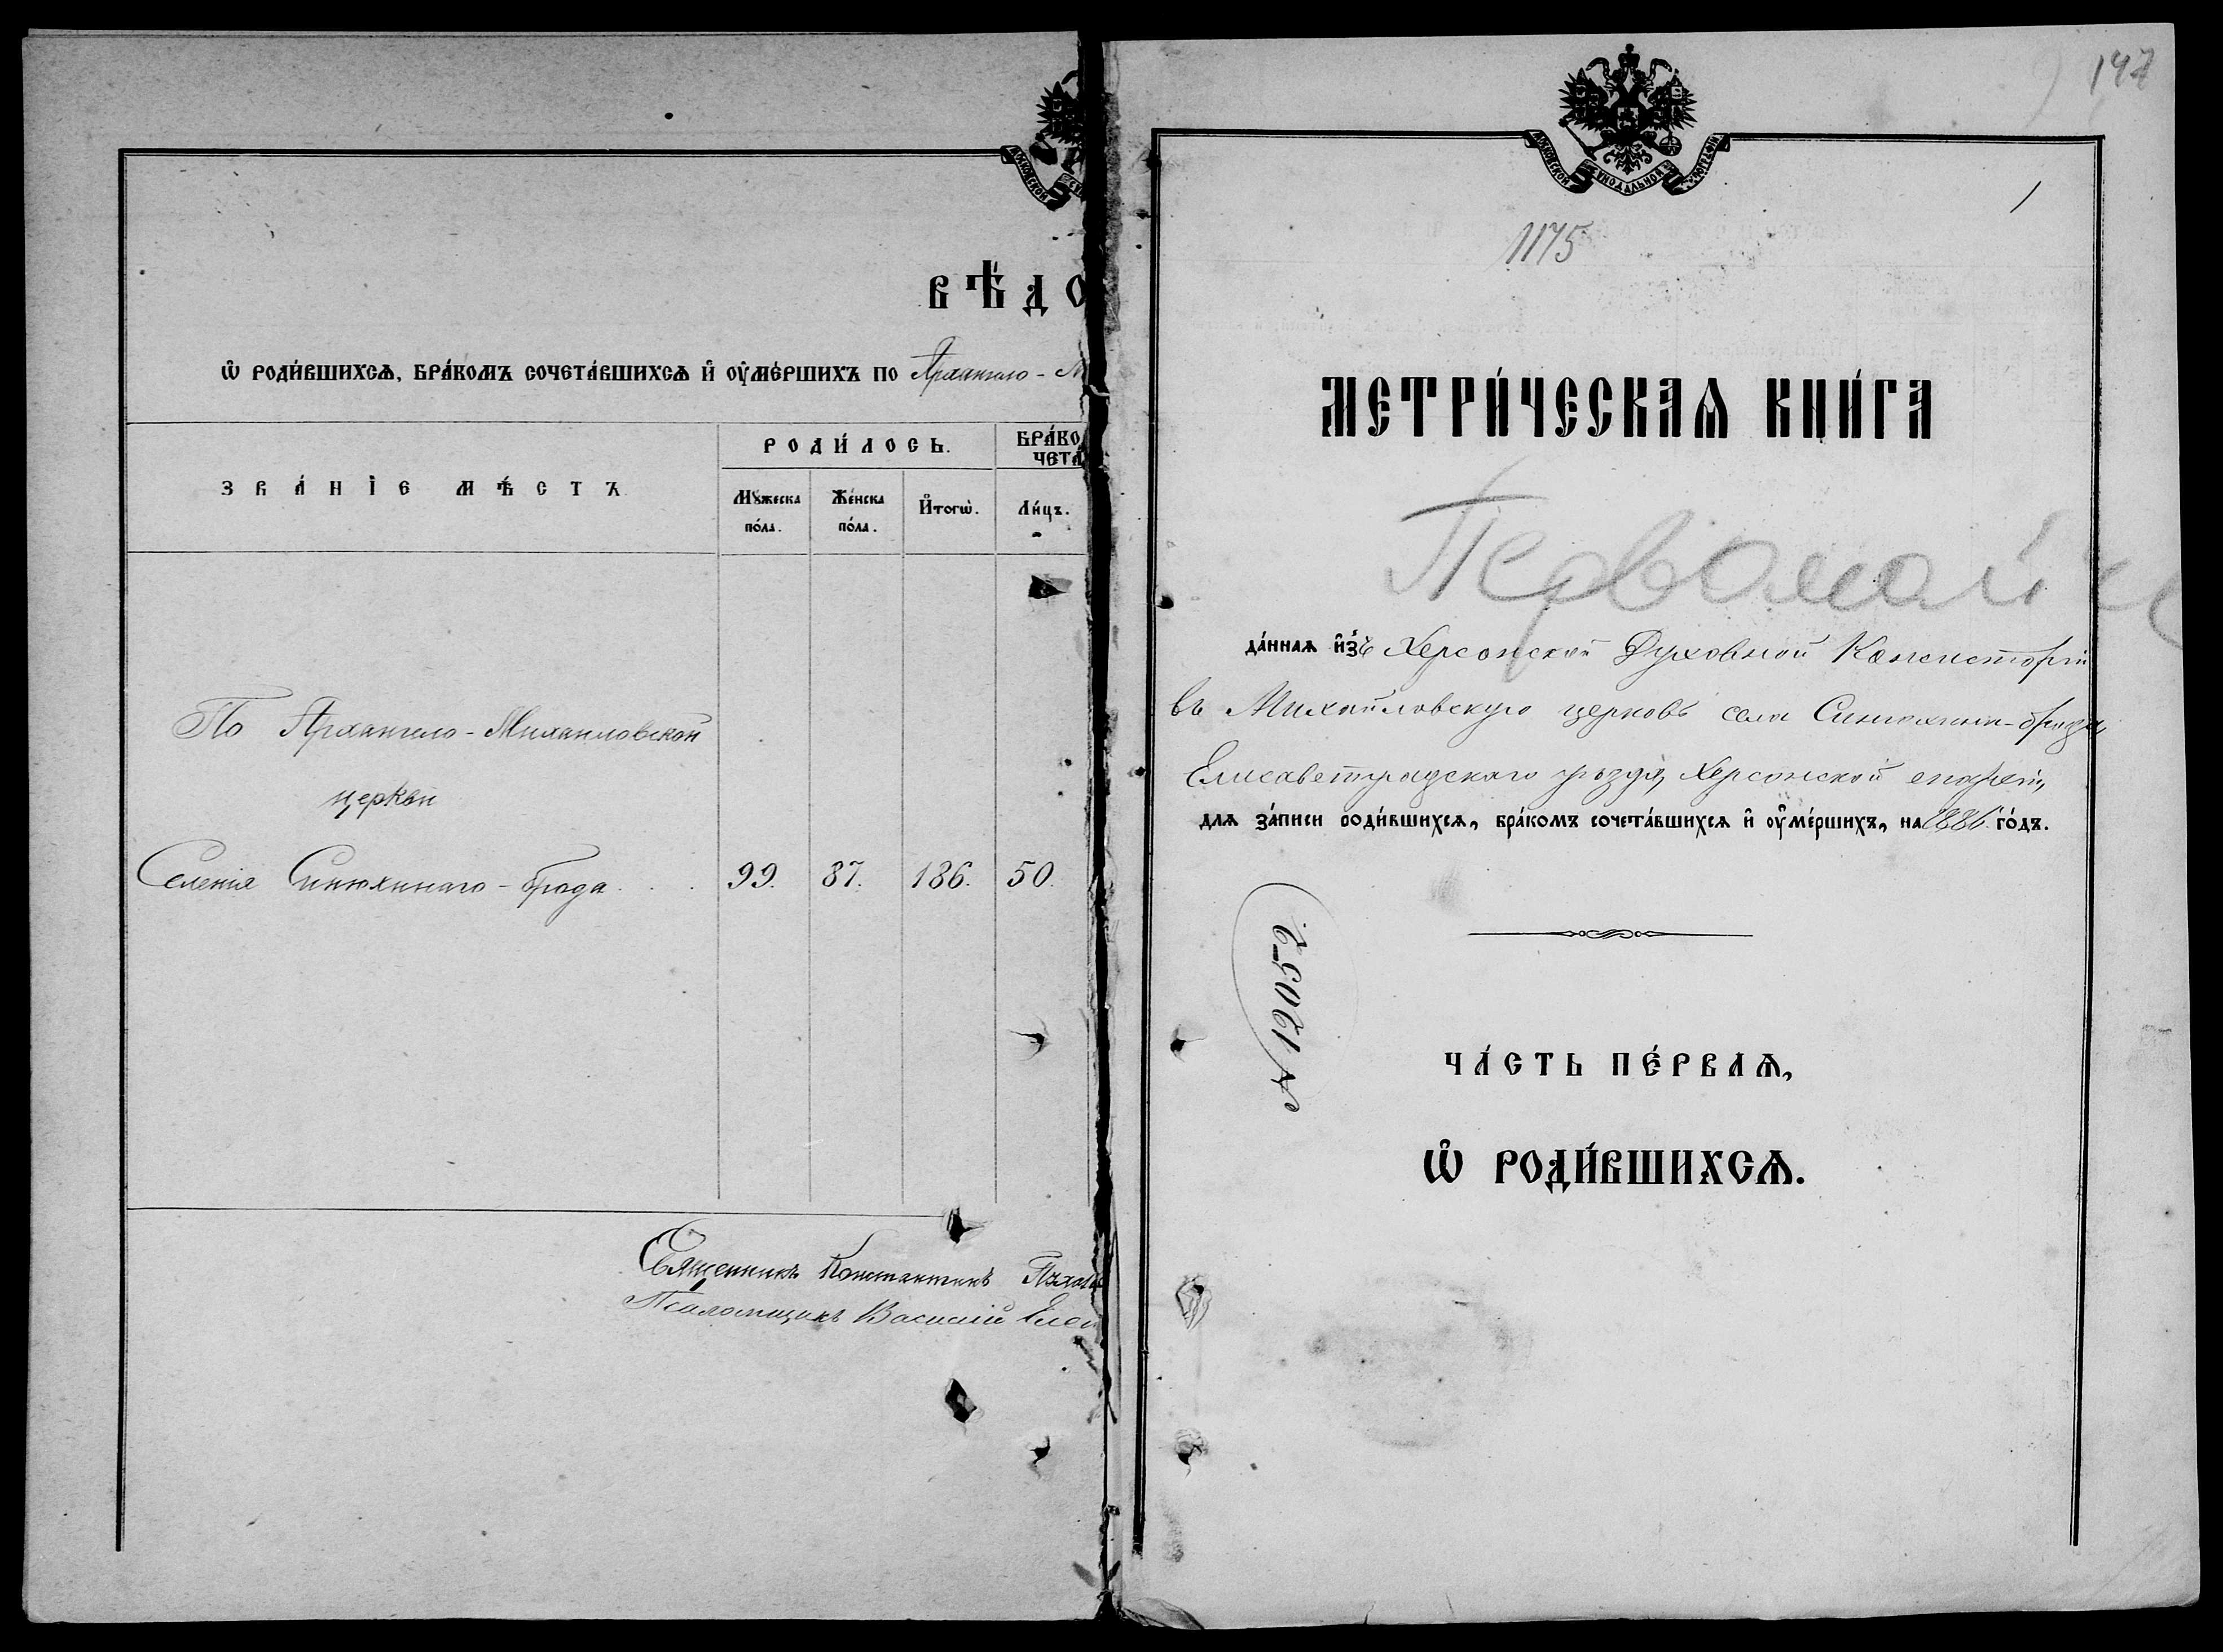 ВѢДО
Ѡ РОДИ́ВШИХСѦ, БРА́КОМЪ СОЧЕТА́ВШИХСѦ И҆ ОУ҆МЕ́РШИХЪ ПО Архангело - М
ЗВА́НІЕ МѢ́СТЪ
РОДИ́ЛОСЬ.
БРА́КО
ЧЕТА́
Мꙋ́жеска по́ла.
Же́нска по́ла.
И҆тогѡ̀.
Ли́цъ.
По Архангело - Михаиловской
церкви
Селенія Синюхинаго - брода . . . 99. 87. 186. 50.
Священникъ Константинъ
Псаломщикъ Василій
МОСКОВСКОЙ СѴНОДАЛЬНОЙ ТѴПОГРАФІИ
147
1
1175
МЕТРИ́ЧЕСКАѦ КНИ́ГА
Первомайск
да́ннаѧ и҆з̾ Херсонской Духовной Консисторіи
въ Михайловскую церковь села Синюхина-брода
Елисаветградскаго уѣзда, Херсонской епархіи,
длѧ за́писи роди́вшихсѧ, бра́комъ сочета́вшихсѧ и҆ оу҆ме́ршихъ, на 1886 го́дъ.
№ 12052
ЧА́СТЬ ПЕ́РВАѦ,
Ѡ РОДИ́ВШИХСѦ.